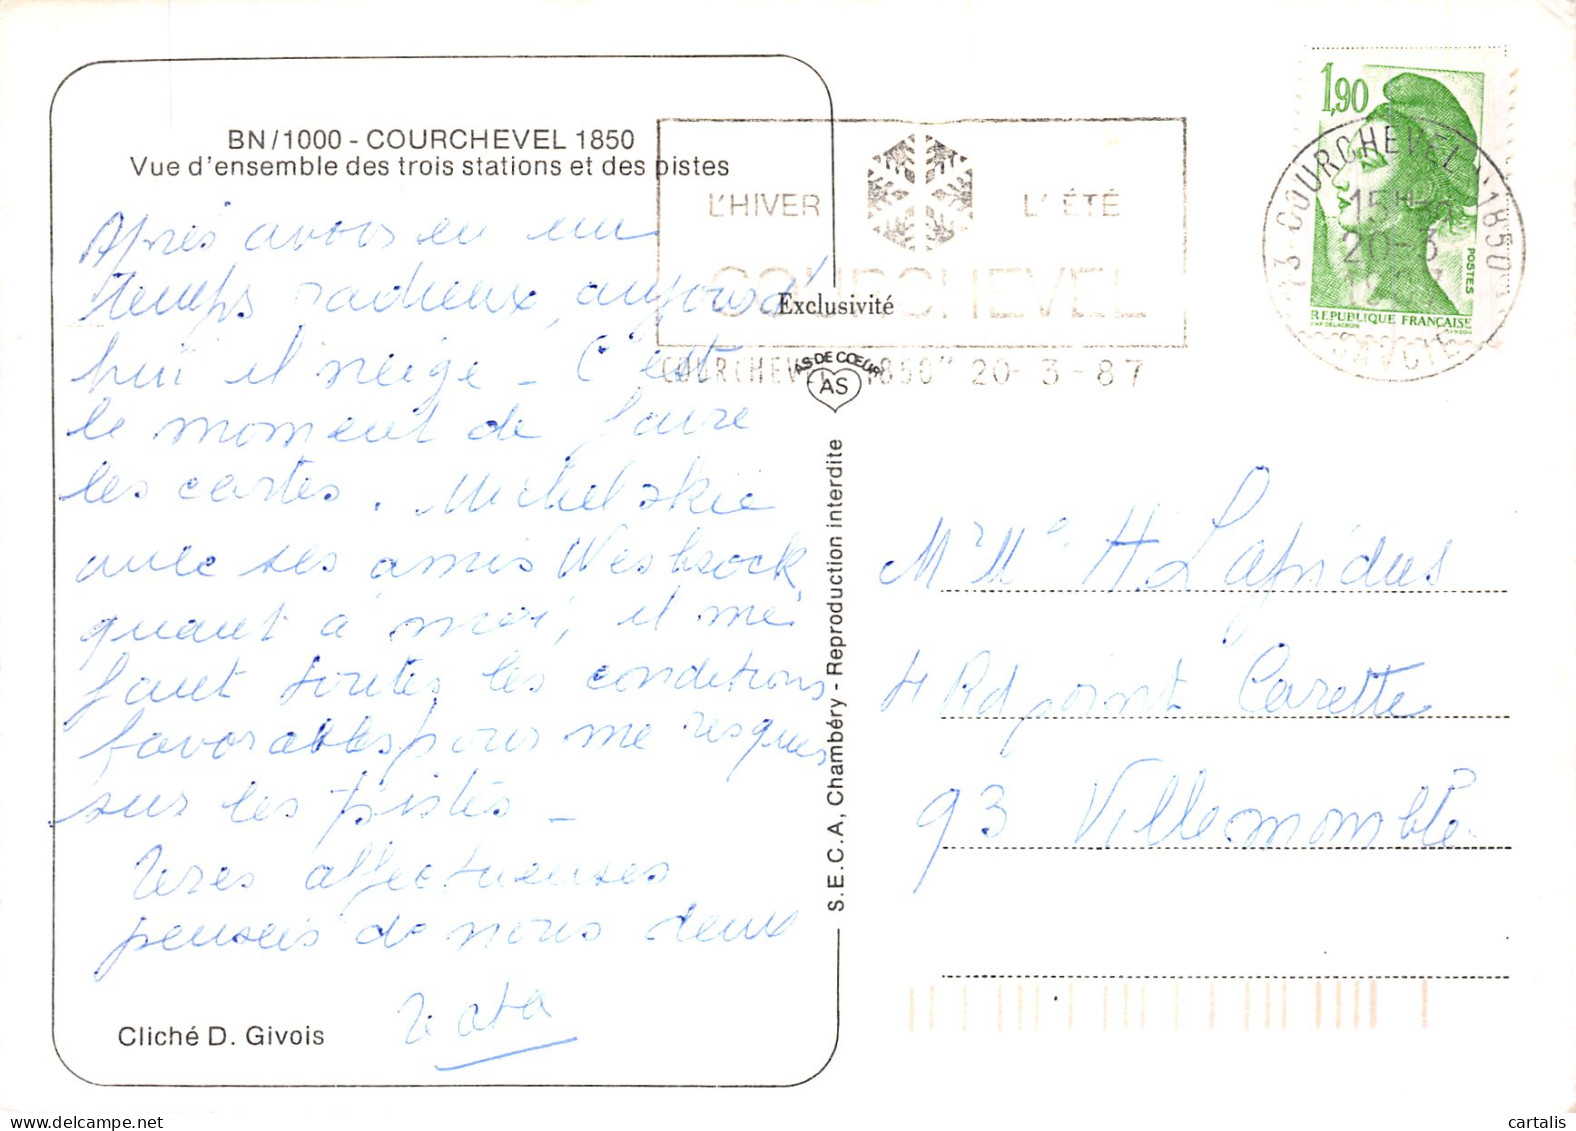 BN/1000 - COURCHEVEL 1850
Vue d'ensemble des trois stations et des pistes
Après avoir eu un
temps radieux, aujourd'
hui il neige - C'est
le moment de faire
les cartes. Michel skie
avec ses amis
quant à moi, il me
faut toutes les conditions
favorables pour me risquer
sur les pistes -
Tres affectueuses
pensées de nous deux
Cliché D. Givois
L'HIVER
L'ÉTÉ
COURCHEVEL
COURCHEVEL "1850" 20-3-87
Exclusivité
AS DE CŒUR
AS
S.E.C.A, Chambéry - Reproduction interdite
1,90
POSTES
REPUBLIQUE FRANÇAISE
73 COURCHEVEL "1850"
15H
20-3
SAVOIE
Mr Me H. Lapidus
4 Rd point Carette
93 Villemomble
cartalis
delcampe.net